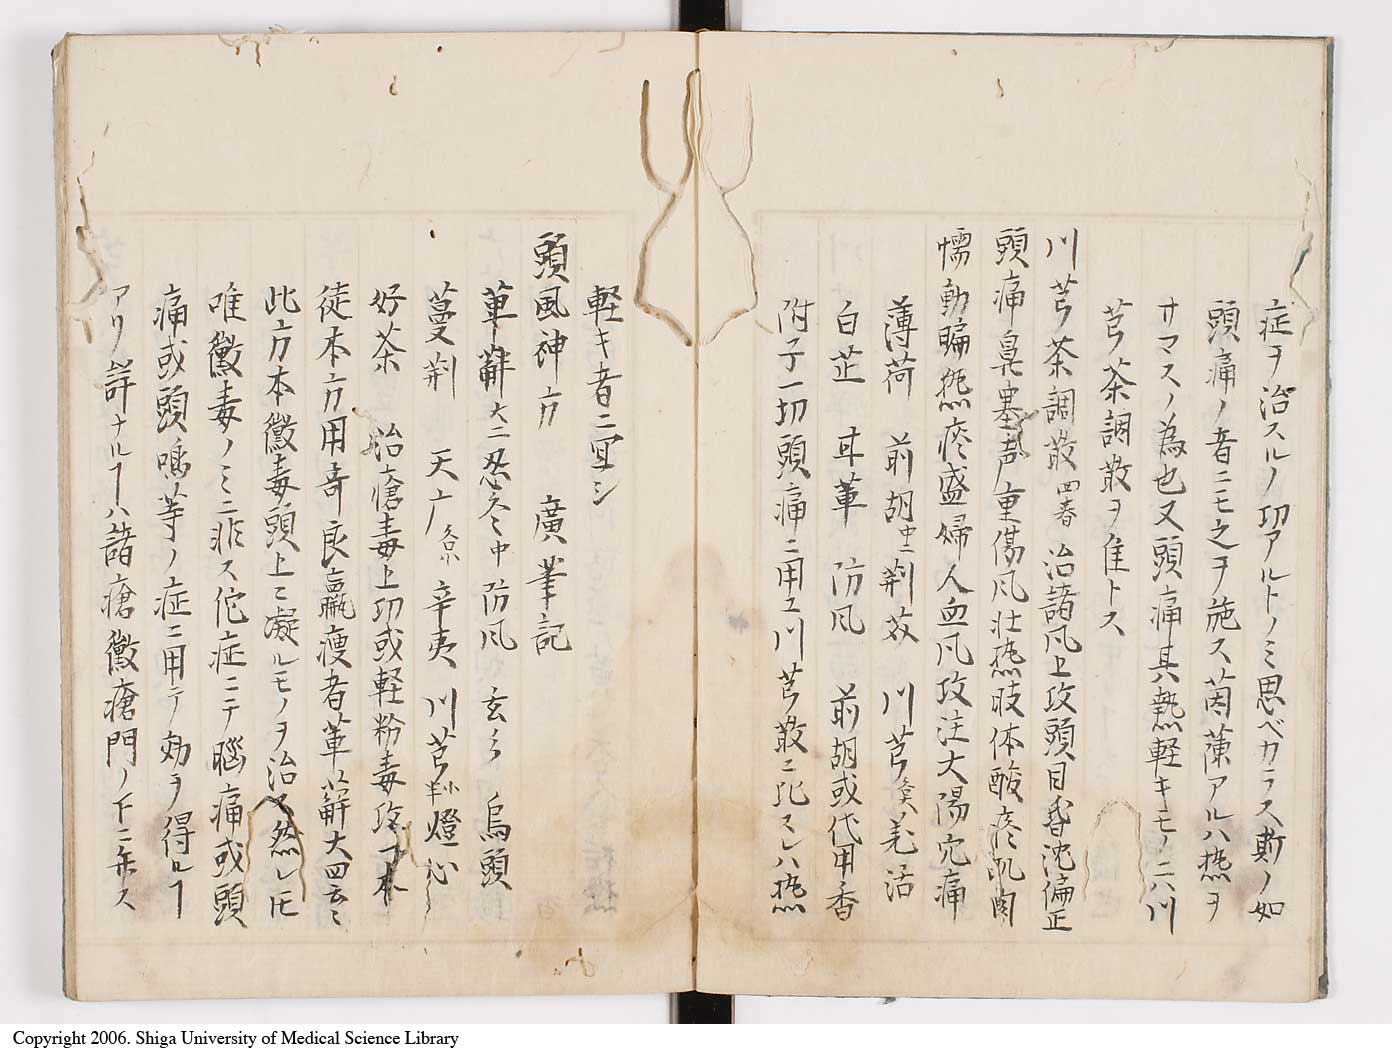 症ヲ治スルノ功アルトノミ思ベカラス斯ノ如
頭痛ノ者ニモ之ヲ施ス茵蔯アルハ熱ヲ
サマスノ為也又頭痛其熱軽キモノニハ川
芎茶調散ヲ隹トス
川芎茶調散 四春 治諸風上攻頭目昏沈偏正
頭痛鼻塞声重傷風壮熱肢体酸疼肌肉
懦動 熱痰盛婦人血風攻注大陽穴痛
薄荷 前胡 中二 荊芥 川芎 羌活
白芷 甘草 防風 前胡或代用香
附子一切頭痛ニ用ユ川芎散ニ比スレハ熱
軽キ者ニ冝シ
頭風神方 廣筆記
萆薢 大二 忍冬 中 防風 玄参 烏頭
蔓荊 天广 各小 辛夷 川芎 半小 燈心
好茶 治瘡毒上功或軽粉毒攻下本
徒本方用奇良羸痩者萆薢大四玄参
此方本黴毒頭上ニ凝ルモノヲ治ス然レ𪜈
唯黴毒ノミニ非ス佗症ニテ脳痛或頭
痛或頭鳴等ノ症ニ用テ効ヲ得ルヿ
アリ詳ナルヿハ諸瘡黴瘡門ノ下ニ弁ス
Copyright 2006. Shiga University of Medical Science Library